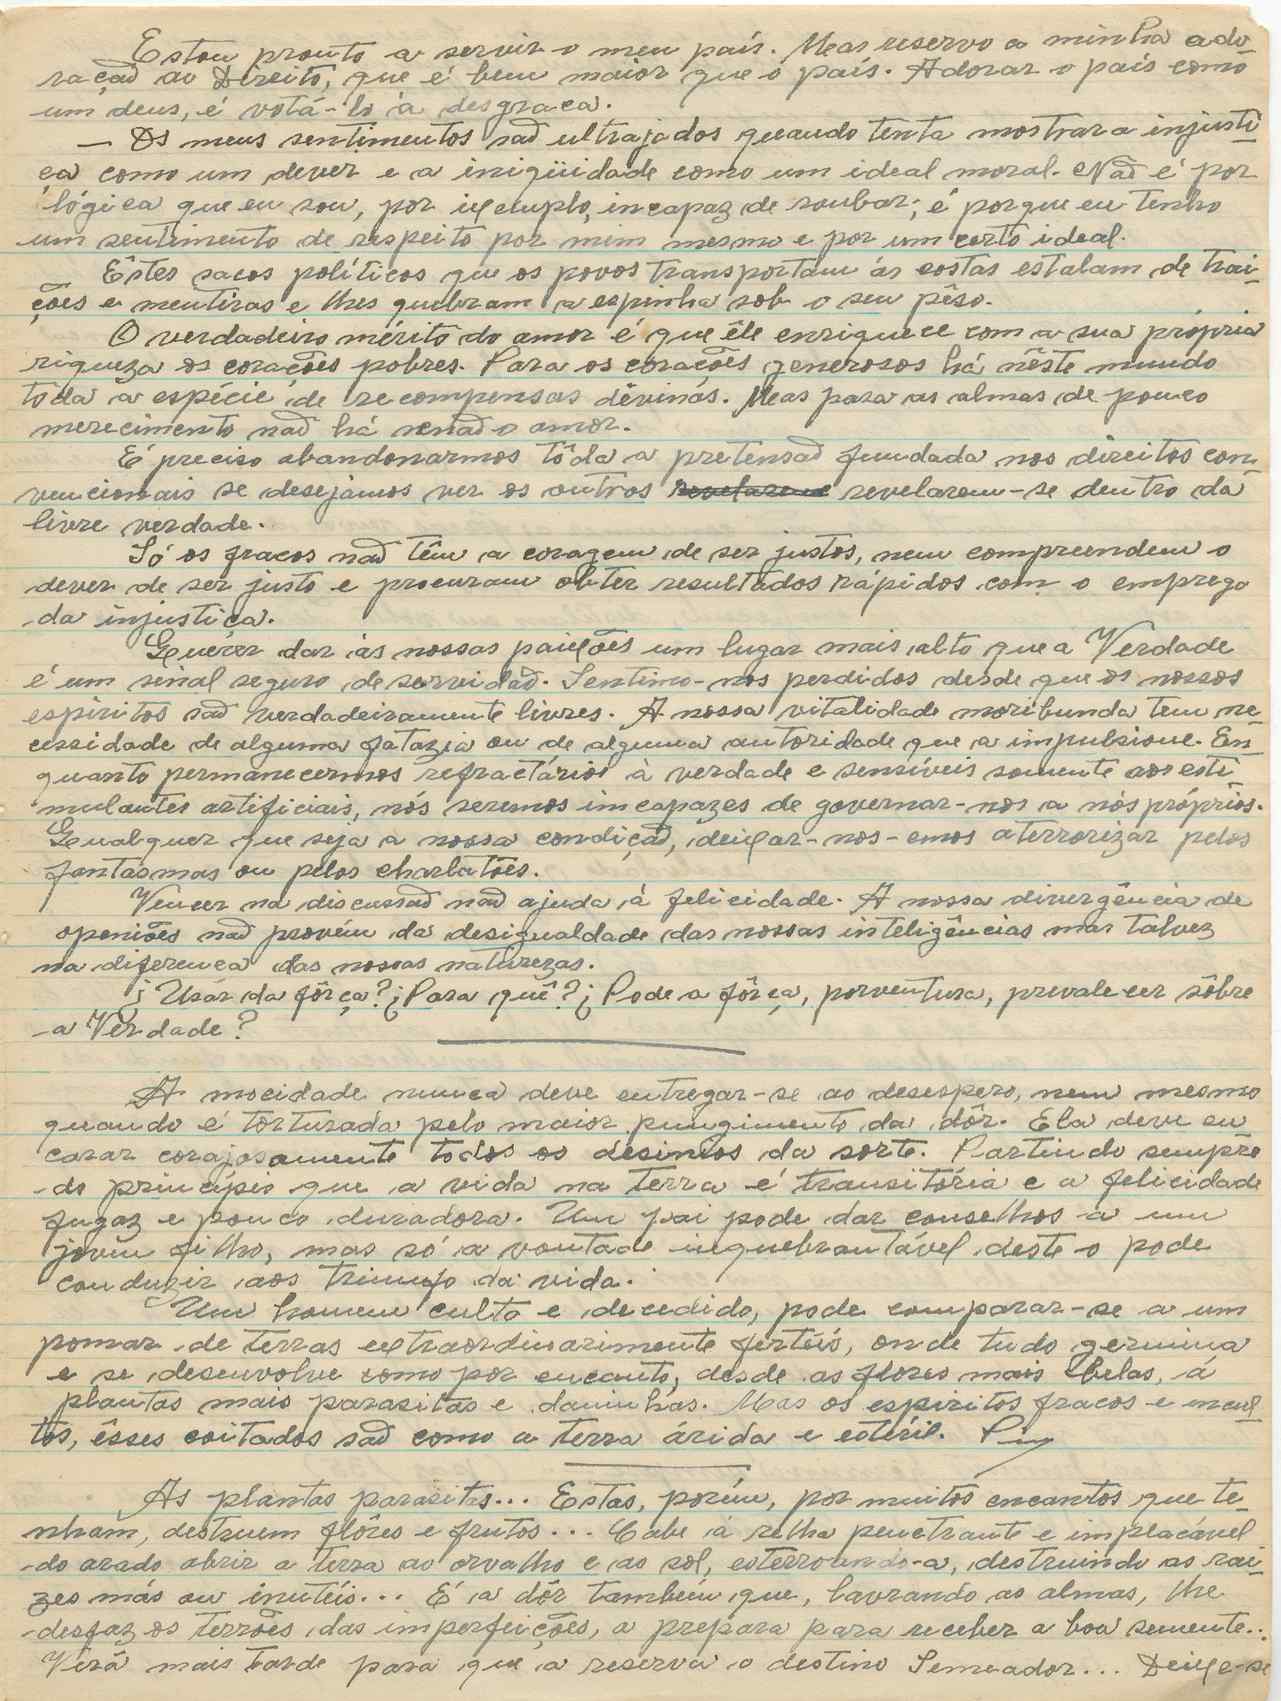 Estou pronto a servir o meu país. Mas reservo a minha ado-
ração ao Direito, que é bem maior que o país. Adorar o país como
um deus, é votá-lo à desgraça.
— Os meus sentimentos são ultrajados quando tenta mostrar a injusti-
ça como um dever e a iniqüidade como um ideal moral. Não é por
lógica que eu sou, por exemplo, incapaz de roubar; é porque eu tenho
um sentimento de respeito por mim mesmo e por um certo ideal.
Êstes sacos políticos que os povos transportam ás costas estalam de trai-
ções e mentiras e lhes quebram a espinha sob o seu pêso.
O verdadeiro mérito do amor é que êle enriquece com a sua própria
riqueza os corações pobres. Para os corações generosos há nêste mundo
tôda a espécie de recompensas divinas. Mas para as almas de pouco
merecimento não há senão o amor.
É preciso abandonarmos tôda a pretensão fundada nos direitos con-
vencionais se desejamos ver os outros revelarem-se dentro da
livre verdade.
Só os fracos não têm a coragem de ser justos, nem compreendem o
dever de ser justo e procuram obter resultados rápidos com o emprego
da injustiça.
Querer dar ás nossas paixões um lugar mais alto que a Verdade
é um sinal seguro de servidão. Sentimo-nos perdidos desde que os nossos
espiritos são verdadeiramente livres. A nossa vitalidade moribunda tem ne-
cessidade de alguma fatazia ou de alguma autoridade que a impulsione. En-
quanto permanecermos refractários à verdade e sensíveis somente aos esti-
mulantes artificiais, nós seremos incapazes de governar-nos a nós próprios.
Qualquer que seja a nossa condição, deixar-nos-emos aterrorizar pelos
fantasmas ou pelos charlatões.
Vencer na discussão não ajuda á felicidade. A nossa divergência de
openiões não provém da desigualdade das nossas inteligências mas talvez
na diferença das nossas naturezas.
¿Usar da fôrça? ¿Para quê? ¿Pode a fôrça, porventura, prevalecer sôbre
a Verdade?
A mocidade nunca deve entregar-se ao desespero, nem mesmo
quando é torturada pelo maior pungimento da dôr. Ela deve en
carar corajosamente todos os desinios da sorte. Partindo sempre
do princípio que a vida na terra é transitória e a felicidade
fugaz e pouco duradora. Um pai pode dar conselhos a um
jovem filho, mas só a vontade inquebrantável deste o pode
conduzir aos triunfo da vida.
Um homem culto e decedido, pode comparar-se a um
pomar de terras extraordinariamente fertéis, onde tudo germina
e se desenvolve como por encanto, desde as flores mais belas, á
plantas mais parasitas e daninhas. Mas os espiritos fracos e incul-
tos, êsses coitados são como a terra árida e estéril.
As plantas parasitas... Estas, porém, por muitos encantos que te-
nham, destruem flôres e frutos... Cabe á relha penetrante e implacável
do arado abrir a terra ao orvalho e ao sol, esterroando-a, destruindo as rai-
zes más ou inutéis... É a dôr também que, lavrando as almas, lhe
desfaz os terrões das imperfeições, a prepara para receber a boa semente...
Virá mais tarde para que a reserva o destino Semeador... Deixe-se